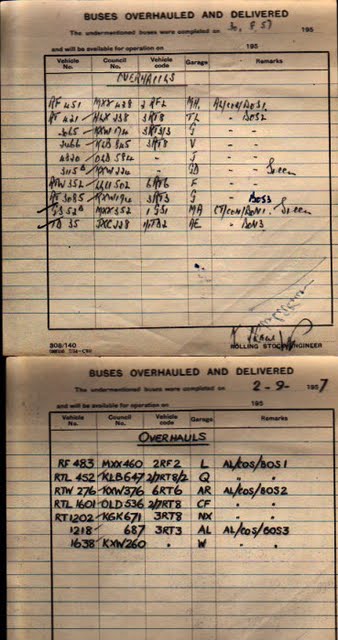 BUSES OVERHAULED AND DELIVERED
The undermentioned buses were completed on 30. 8 57 195
and will be available for operation on 195
Vehicle No. Council No. Vehicle code Garage Remarks
OVERHAULS
RF 451 MXX 428 2RF2
RT 421 HLX 238 3RT8 TL " BOS2
KXW 174 3RT3/3 G - -
KLB 845 3RT8 V - -
OLD 584 - J - -
KXW 224 - Green
RTW 352 LLU 502 6RT6 F - -
RT 3085 KXW194 3RT3 G BOS3
GS 52 MXX 352 1GS1 MA Green
TD 35 JXC 228 1/TD2 AE - BOS3
308/140
ROLLING STOCK ENGINEER
BUSES OVERHAULED AND DELIVERED
The undermentioned buses were completed on 2-9- 1957
and will be available for operation on 195
Vehicle No. Council No. Vehicle code Garage Remarks
OVERHAULS
RF 483 MXX460 2RF2 L AL/COS/BOS1
RTL 452 KLB647 2/7RT8/2 Q " "
RTW 276 KXW376 6RT6 AR AL/COS/BOS2
RTL 1601 OLD 536 2/7RT8 CF " "
RT1202 KGK671 3RT8 NX " "
1218 687 3RT3 AL AL/COS/BOS3
1638 KXW260 " W " "